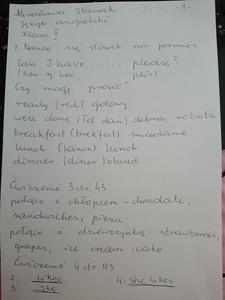 Mirosława Sławak -1-
Język angielski
klasa II
1. Naucz się słówek na pamięć
Can I have ...... please?
(ken aj hev plis)
Czy mogę prosić?
ready (redi) gotowy
well done (Łel dan) dobra robota
breakfast (brekfest) śniadanie
lunch (lancz) lunch
dinner (diner) obiad
Ćwiczenie 3 str. 43
połącz z chłopcem - chocolate,
sandwiches, pizza
połącz z dziewczynką - strawberries,
grapes, ice cream, cake
Ćwiczenie 4 str 43
2. Likes 4. She likes
3. She